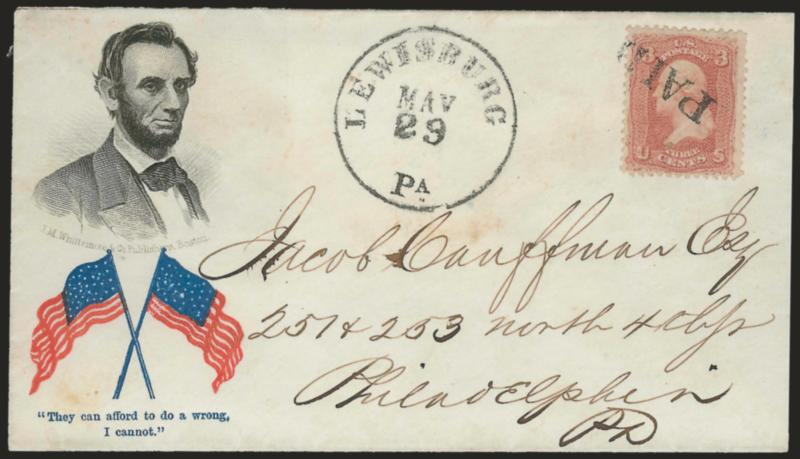 J.M. Whittemore & Co Publishers, Boston.
"They can afford to do a wrong,
I cannot."
LEWISBURG
MAY
29
PA
U.S.
POSTAGE
3 3
THREE
CENTS
U S
PAID
Jacob Cauffman Esq
251 & 253 north 4
Philadelphia
PA